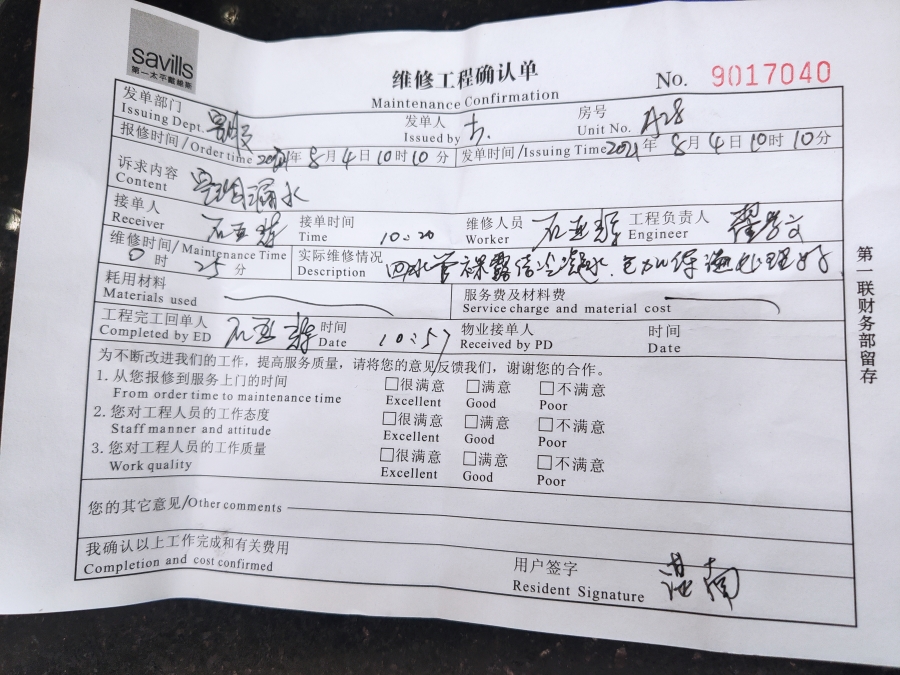 savills
第一太平戴维斯
维修工程确认单
Maintenance Confirmation
No. 9017040
发单部门 Issuing Dept. 发单人 Issued by 房号 Unit No. A28
报修时间/Order time 2021年8月4日10时10分 发单时间/Issuing Time 2021年8月4日10时10分
诉求内容 Content 漏水
接单人 Receiver 石亚辉 接单时间 Time 10:20 维修人员 Worker 石亚辉 工程负责人 Engineer
维修时间/Maintenance Time 0时25分 实际维修情况 Description 回水管裸露结冷凝水,已加保温处理好
耗用材料 Materials used 服务费及材料费 Service charge and material cost
工程完工回单人 Completed by ED 石亚辉 时间 Date 10:57 物业接单人 Received by PD 时间 Date
为不断改进我们的工作,提高服务质量,请将您的意见反馈我们,谢谢您的合作。
1. 从您报修到服务上门的时间 □很满意 □满意 □不满意
From order time to maintenance time Excellent Good Poor
2. 您对工程人员的工作态度 □很满意 □满意 □不满意
Staff manner and attitude Excellent Good Poor
3. 您对工程人员的工作质量 □很满意 □满意 □不满意
Work quality Excellent Good Poor
您的其它意见/Other comments
我确认以上工作完成和有关费用
Completion and cost confirmed
用户签字
Resident Signature
第一联财务部留存